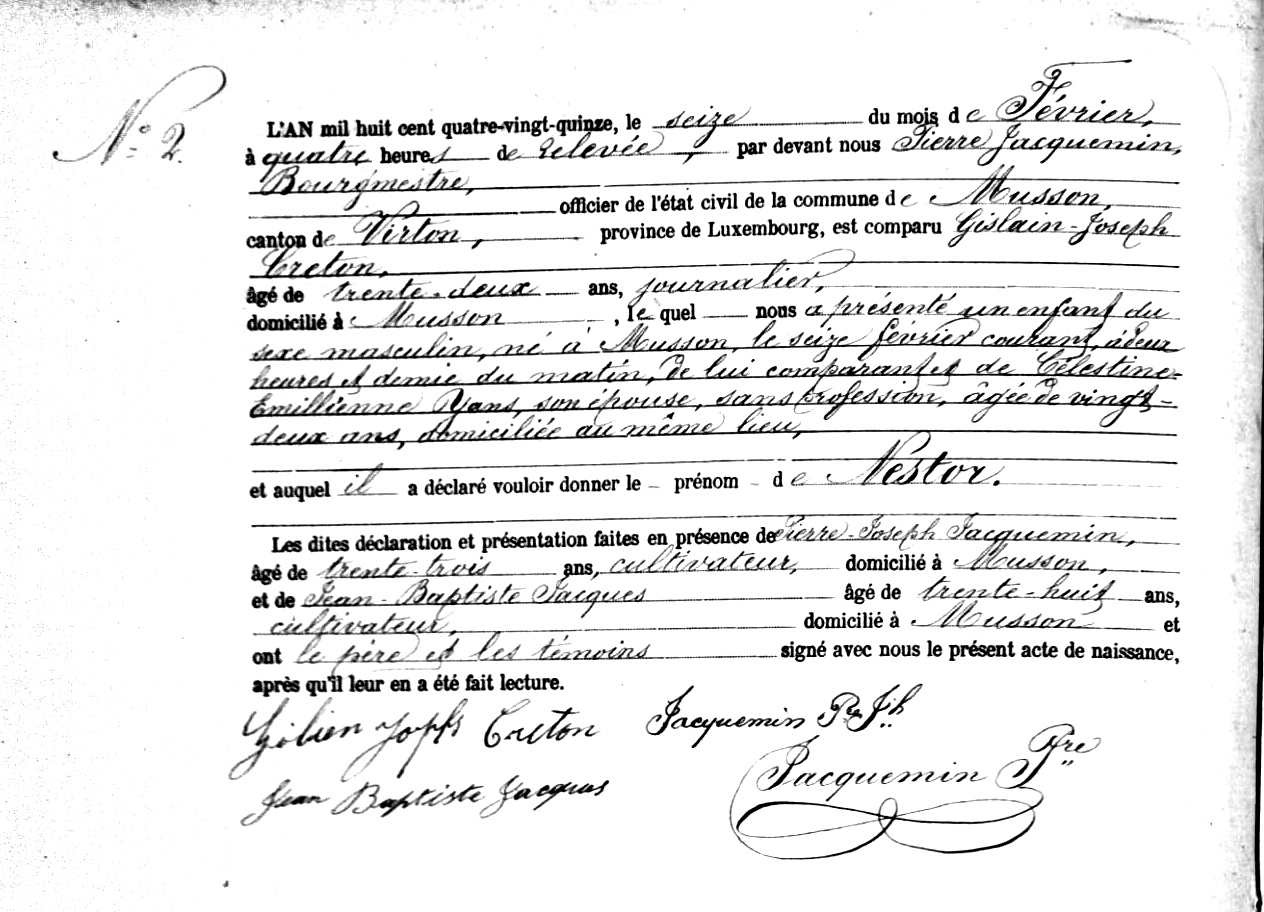 N° 2.
L'AN mil huit cent quatre-vingt-quinze, le seize du mois de Février,
à quatre heures de relevée, par devant nous Pierre Jacquemin,
Bourgmestre,
officier de l'état civil de la commune de Musson,
canton de Virton, province de Luxembourg, est comparu Gislain-Joseph
Creton,
âgé de trente-deux ans, journalier,
domicilié à Musson, le quel nous a présenté un enfant du
sexe masculin, né à Musson, le seize février courant, à deux
heures et demie du matin, de lui comparant et de Célestine-
Emillienne Yans, son épouse, sans profession, âgée de vingt-
deux ans, domiciliée au même lieu,
et auquel il a déclaré vouloir donner le prénom de Nestor.
Les dites déclaration et présentation faites en présence de Pierre-Joseph Jacquemin,
âgé de trente-trois ans, cultivateur, domicilié à Musson,
et de Jean-Baptiste Jacques âgé de trente-huit ans,
cultivateur, domicilié à Musson et
ont le père et les témoins signé avec nous le présent acte de naissance,
après qu'il leur en a été fait lecture.
Creton Jacquemin Pre Jh
Jean Baptiste Jacques Jacquemin Pre